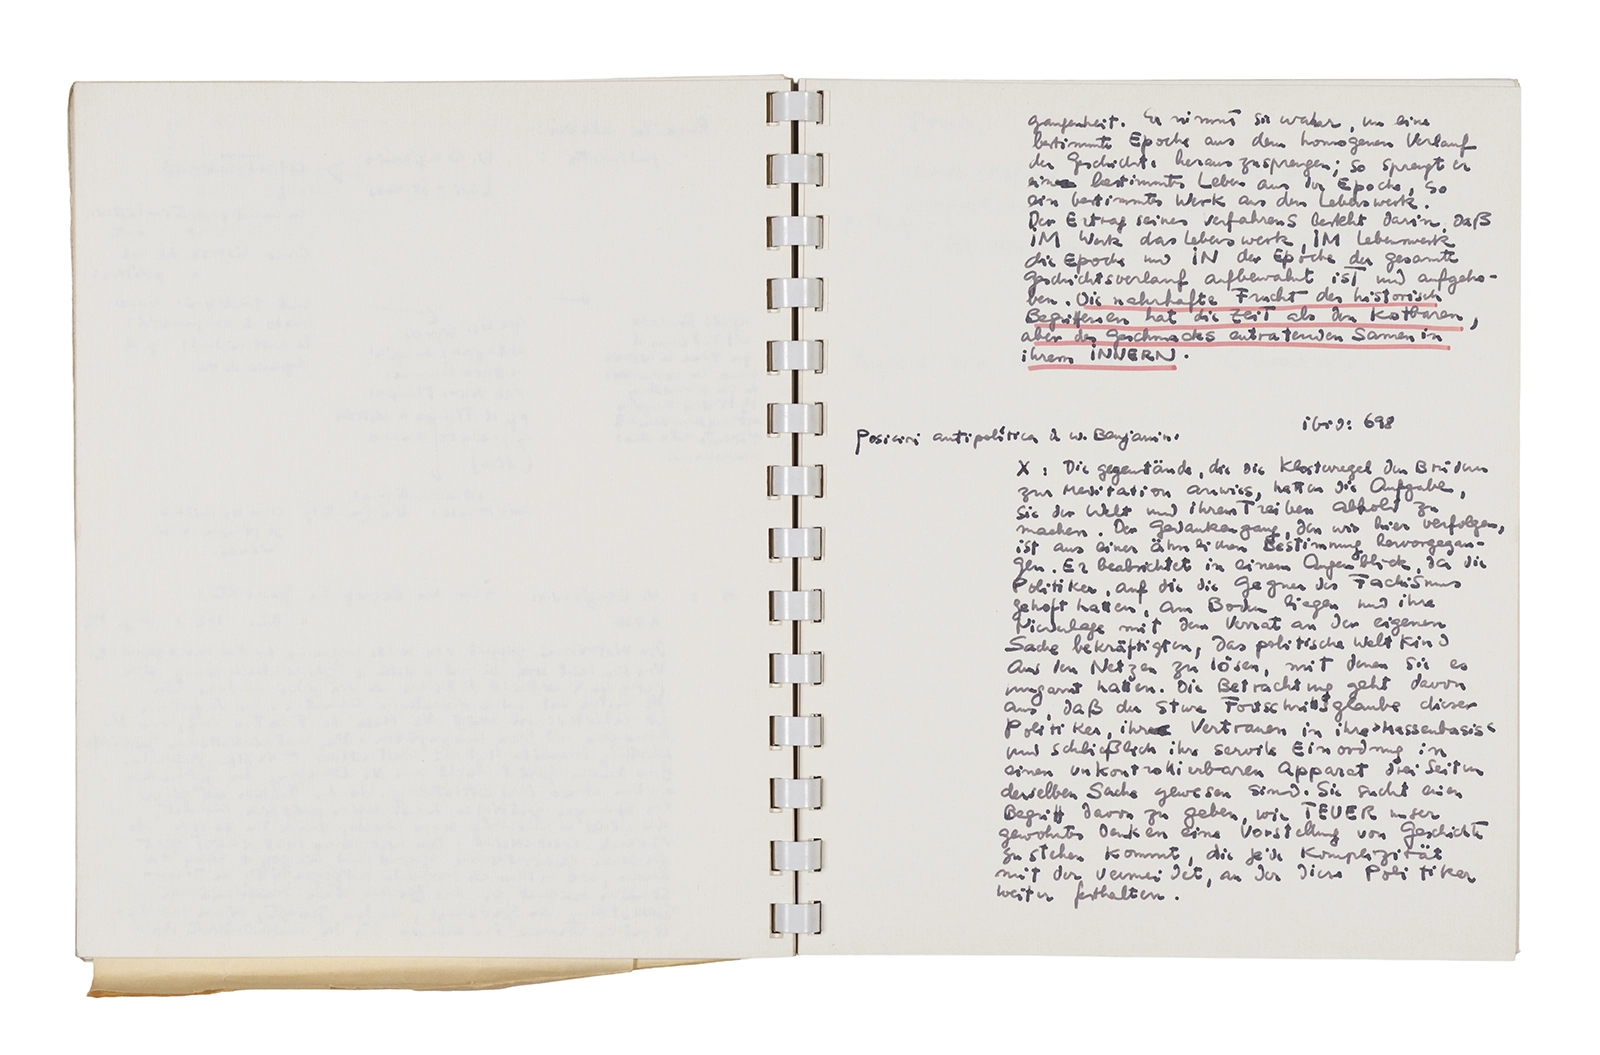 gangenheit. Er nimmt sie wahr, um eine
bestimmte Epoche aus dem homogenen Verlauf
der Geschichte herauszusprengen; so sprengt er
ein bestimmtes Leben aus der Epoche, so
ein bestimmtes Werk aus dem Lebenswerk.
Der Ertrag seines Verfahrens besteht darin, daß
IM Werk das Lebenswerk, IM Lebenswerk
die Epoche und IN der Epoche der gesamte
Geschichtsverlauf aufbewahrt ist und aufgeho-
ben. Die nahrhafte Frucht des historisch
Begriffenen hat die Zeit als den Kotbaren,
aber des Geschmackes entratenden Samen in
ihrem INNERN.
ibid: 698
Posició antipolítica d W. Benjamin:
X: Die Gegenstände, die die Klosterregel den Brüdern
zur Meditation anwies, hatten die Aufgabe,
sie der Welt und ihrem Treiben abhold zu
machen. Der Gedankengang, den wir hier verfolgen,
ist aus einer ähnlichen Bestimmung hervorgegan-
gen. Er beabsichtet in einem Augenblick, da die
Politiker, auf die die Gegner des Fachismus
gehoft hatten, am Boden liegen und ihre
Niederlage mit dem Verrat an der eigenen
Sache bekräftigten, das politische Weltkind
aus den Netzen zu lösen, mit denen sie es
umgarnt hatten. Die Betrachtung geht davon
aus, daß der sture Fortschrittsglaube dieser
Politiker, ihr Vertrauen in ihre >Massenbasis<
und schließlich ihre servile Einordnung in
einen unkontrollierbaren Apparat drei Seiten
derselben Sache gewesen sind. Sie sucht einen
Begriff davon zu geben, wie TEUER unser
gewohntes Denken eine Vorstellung von Geschichte
zu stehen kommt, die jede Komplizität
mit der vermeidet, an der diese Politiker
weiter festhalten.